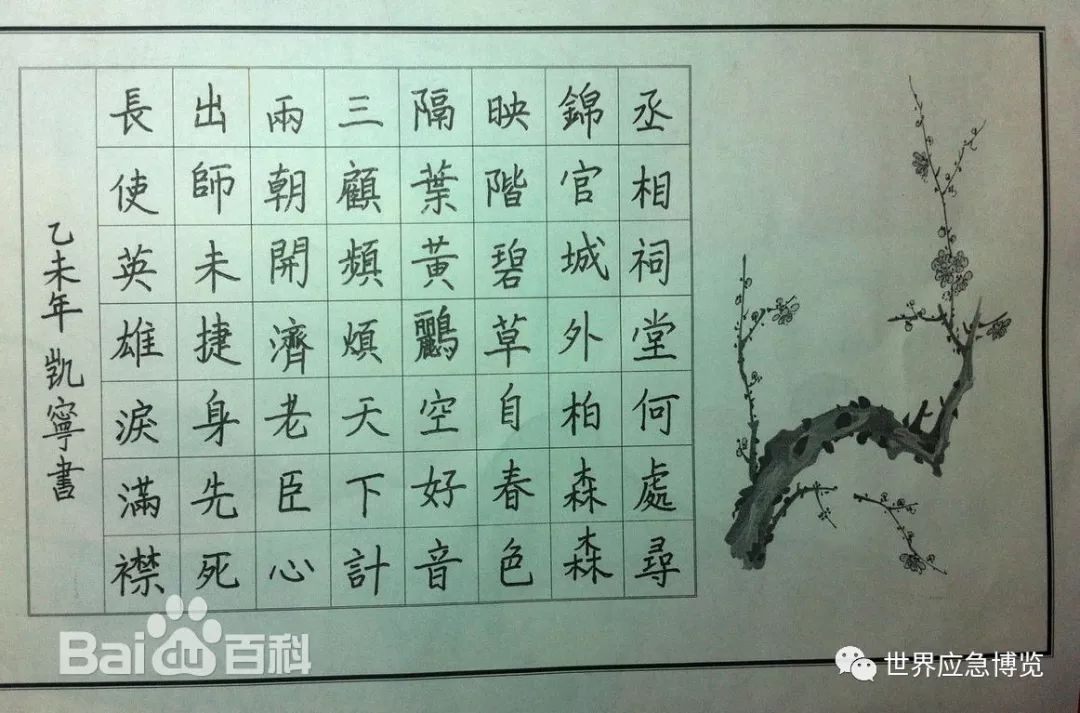 丞相祠堂何處尋
錦官城外柏森森
映階碧草自春色
隔葉黃鸝空好音
三顧頻煩天下計
兩朝開濟老臣心
出師未捷身先死
長使英雄淚滿襟
乙未年 凱寧書
Bai du 百科
世界应急博览